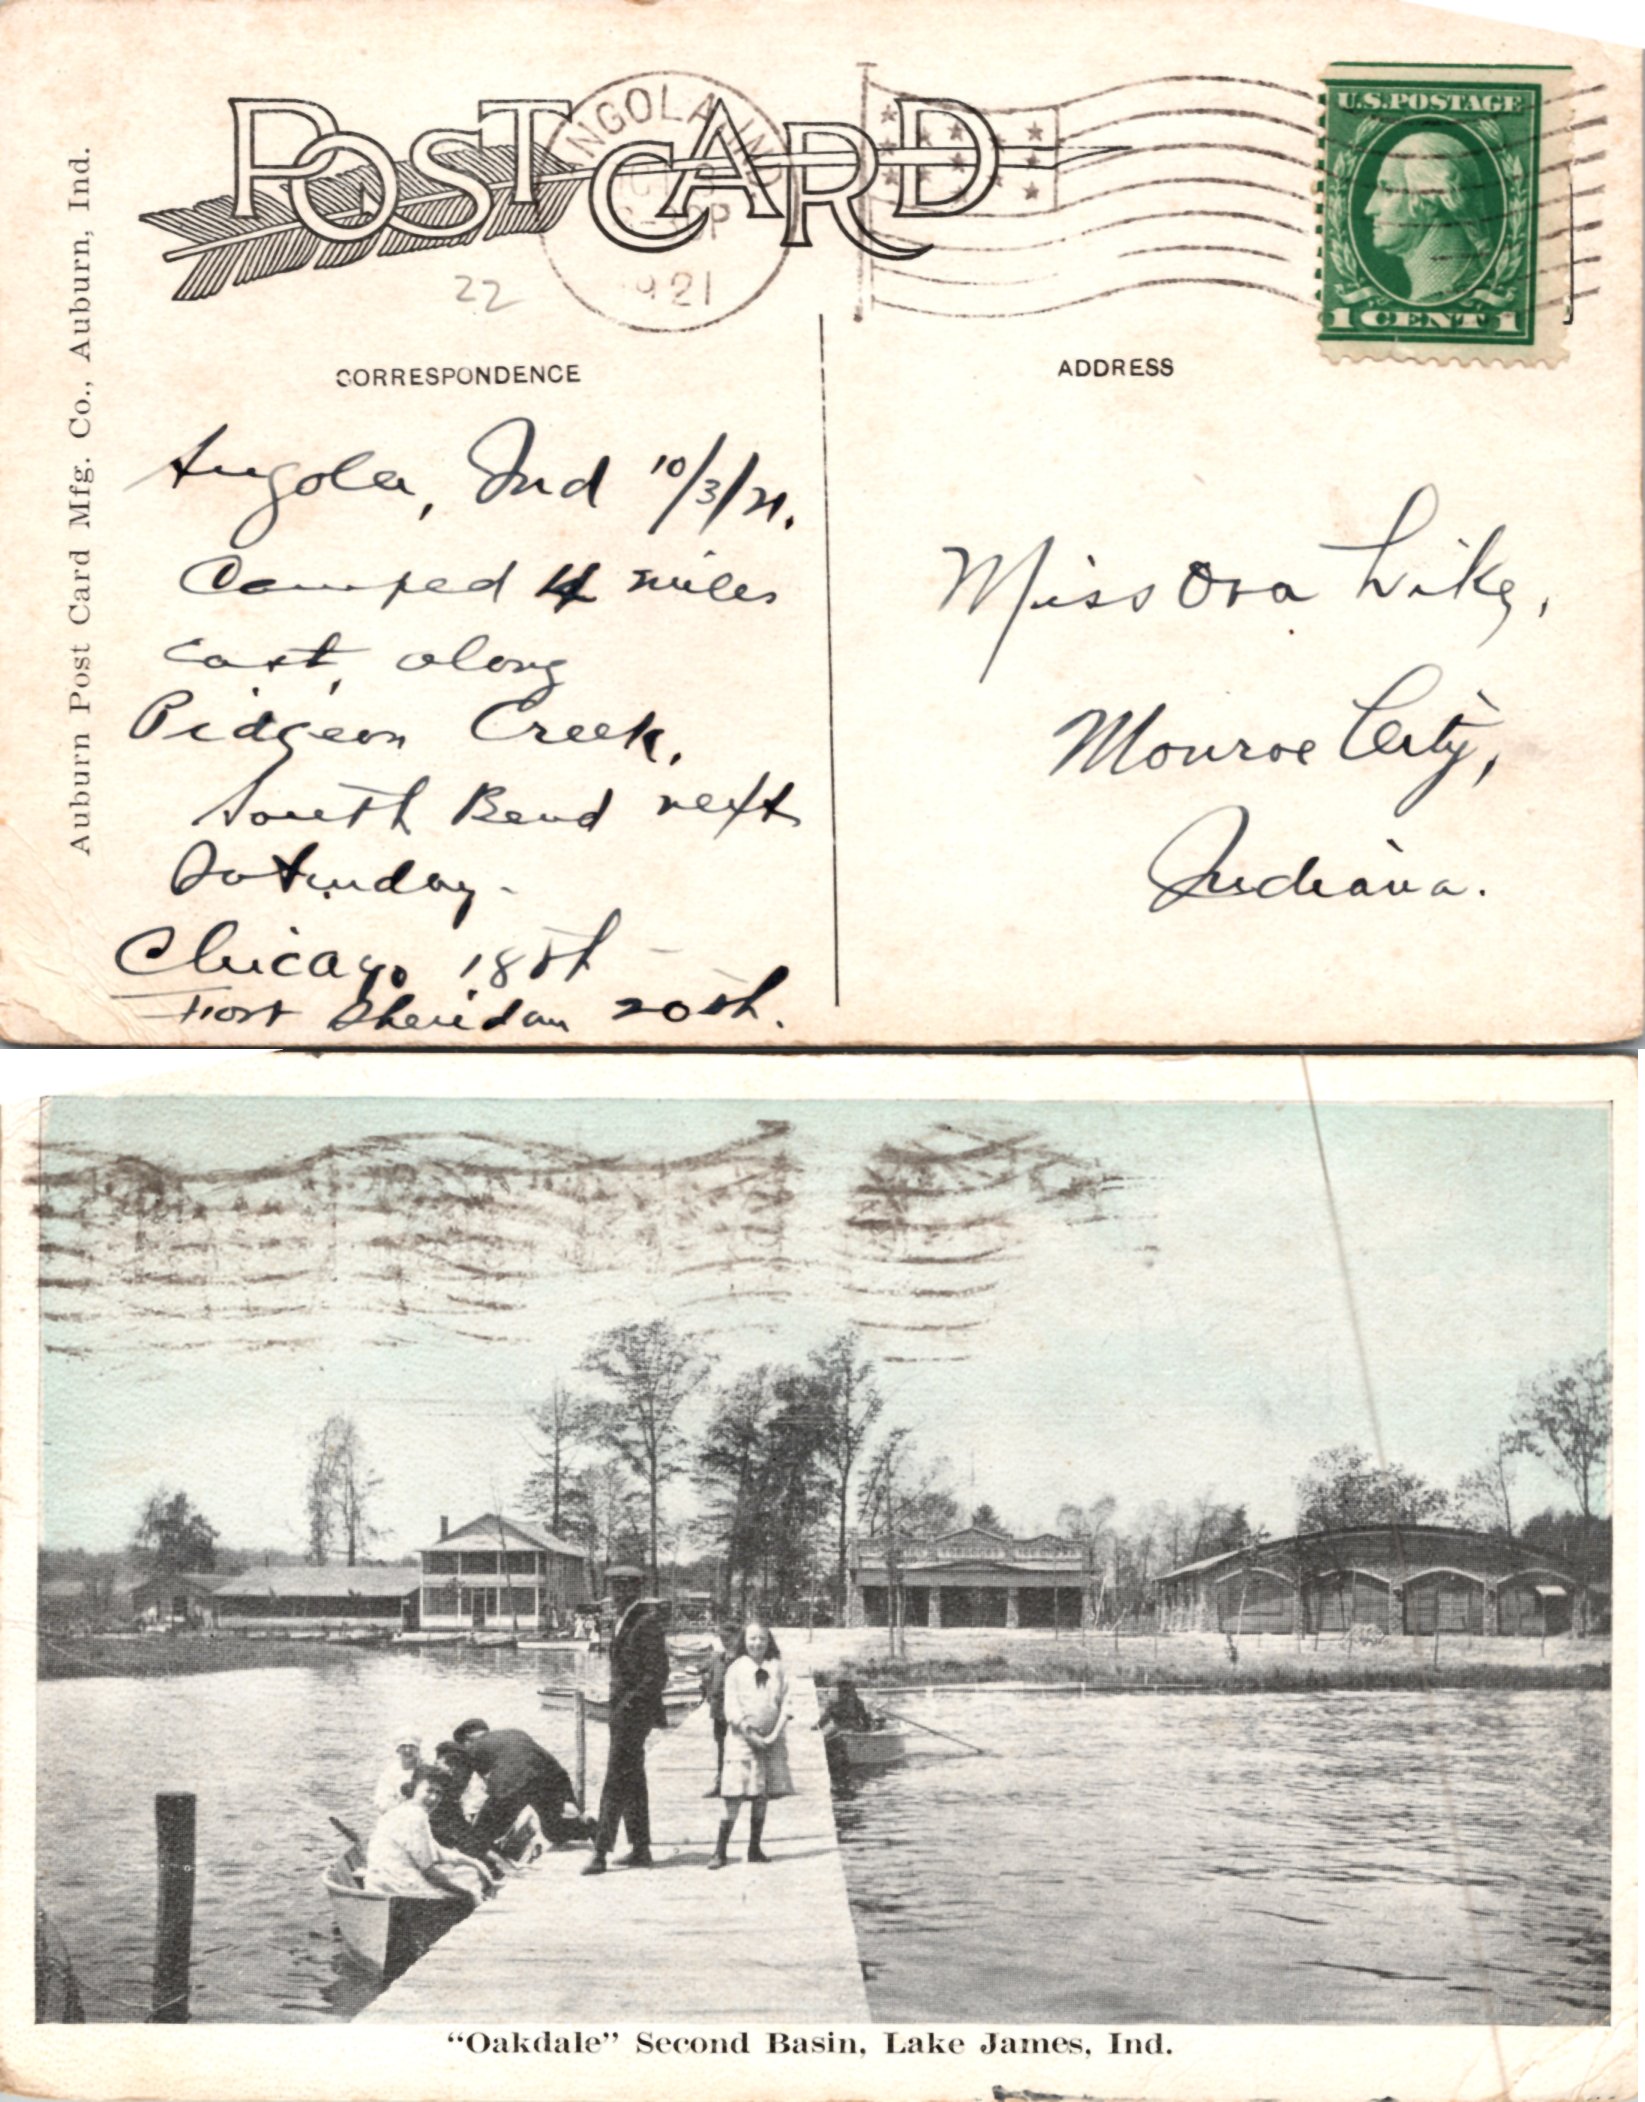 POST CARD
ANGOLA, IND.
1921
U.S. POSTAGE
1 CENT 1
22
Auburn Post Card Mfg. Co., Auburn, Ind.
CORRESPONDENCE
ADDRESS
Angola, Ind 10/3/21.
Camped 4 miles
east, along
Pidgeon Creek.
South Bend next
Saturday-
Chicago 18th -
Fort Sheridan 20th.
Miss Ora Like,
Monroe City,
Indiana.
"Oakdale" Second Basin, Lake James, Ind.